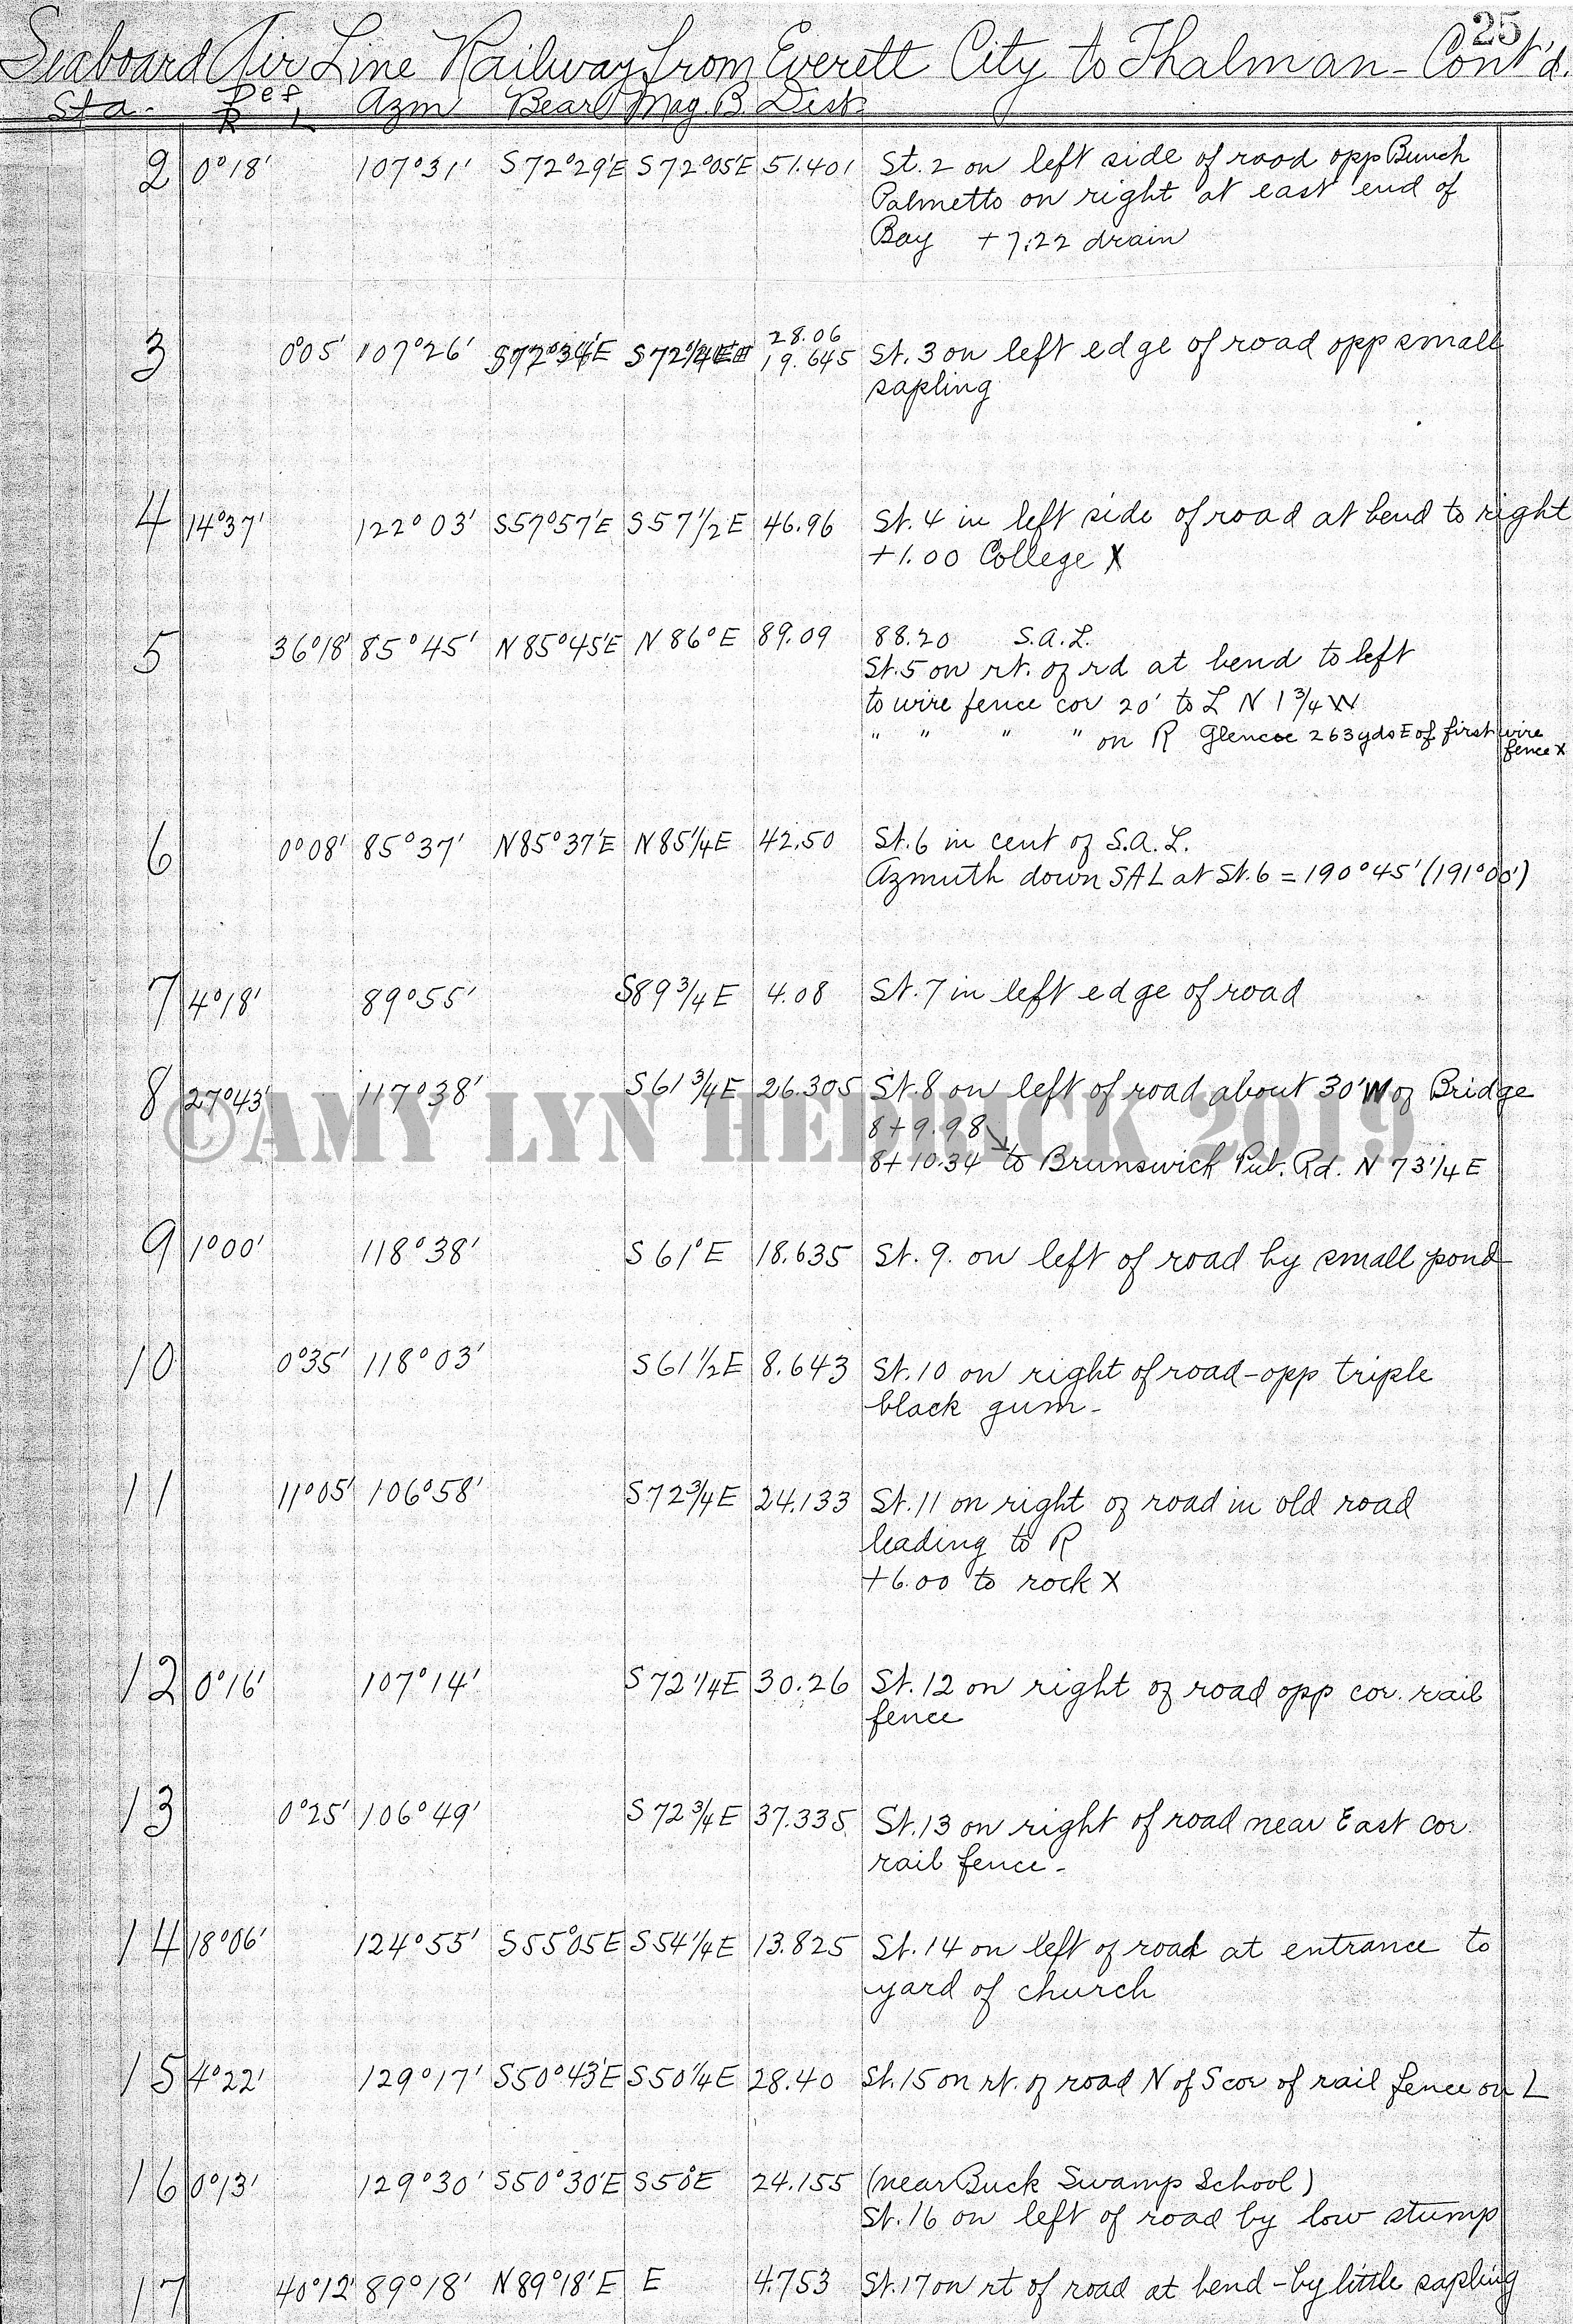 25
Seaboard Air Line Railway from Everett City to Thalman - Cont'd.
Sta. Def R L Azm Bear Mag. B. Dist.
2 0°18' 107°31' S72°29'E S72°05'E 51.401 St. 2 on left side of road opp Bunch
Palmetto on right at east end of
Bay +7.22 drain
28.06
3 0°05' 107°26' S72°34'E S72 1/4 E 19.645 St. 3 on left edge of road opp small
sapling
4 14°37' 122°03' S57°57'E S57 1/2 E 46.96 St. 4 in left side of road at bend to right
+1.00 College X
5 36°18' 85°45' N85°45'E N86°E 89.09 88.20 S.A.L.
St. 5 on rt. of rd at bend to left
to wire fence cor 20' to L N 1 3/4 W
" " " " on R Glencoe 263 yds E of first wire
fence X
6 0°08' 85°37' N85°37'E N85 1/4 E 42.50 St. 6 in cent of S.A.L.
Azmuth down SAL at St. 6 = 190°45' (191°00')
7 4°18' 89°55' S89 3/4 E 4.08 St. 7 in left edge of road
8 27°43' 117°38' S61 3/4 E 26.305 St. 8 on left of road about 30' W of Bridge
8+9.98
8+10.34 to Brunswick Pub. Rd. N 73 1/4 E
©AMY LYN HEDRICK 2019
9 1°00' 118°38' S 61°E 18.635 St. 9. on left of road by small pond
10 0°35' 118°03' S61 1/2 E 8.643 St. 10 on right of road - opp triple
black gum -
11 11°05' 106°58' S72 3/4 E 24.133 St. 11 on right of road in old road
leading to R
+6.00 to rock X
12 0°16' 107°14' S72 1/4 E 30.26 St. 12 on right of road opp cor. rail
fence
13 0°25' 106°49' S72 3/4 E 37.335 St. 13 on right of road near East cor.
rail fence -
14 18°06' 124°55' S55°05E S54 1/4 E 13.825 St. 14 on left of road at entrance to
yard of church
15 4°22' 129°17' S50°43'E S50 1/4 E 28.40 St. 15 on rt. of road N of S cor of rail fence on L
16 0°13' 129°30' S50°30'E S50°E 24.155 (near Buck Swamp School)
St. 16 on left of road by low stump
17 40°12' 89°18' N89°18'E E 4.753 St. 17 on rt of road at bend - by little sapling